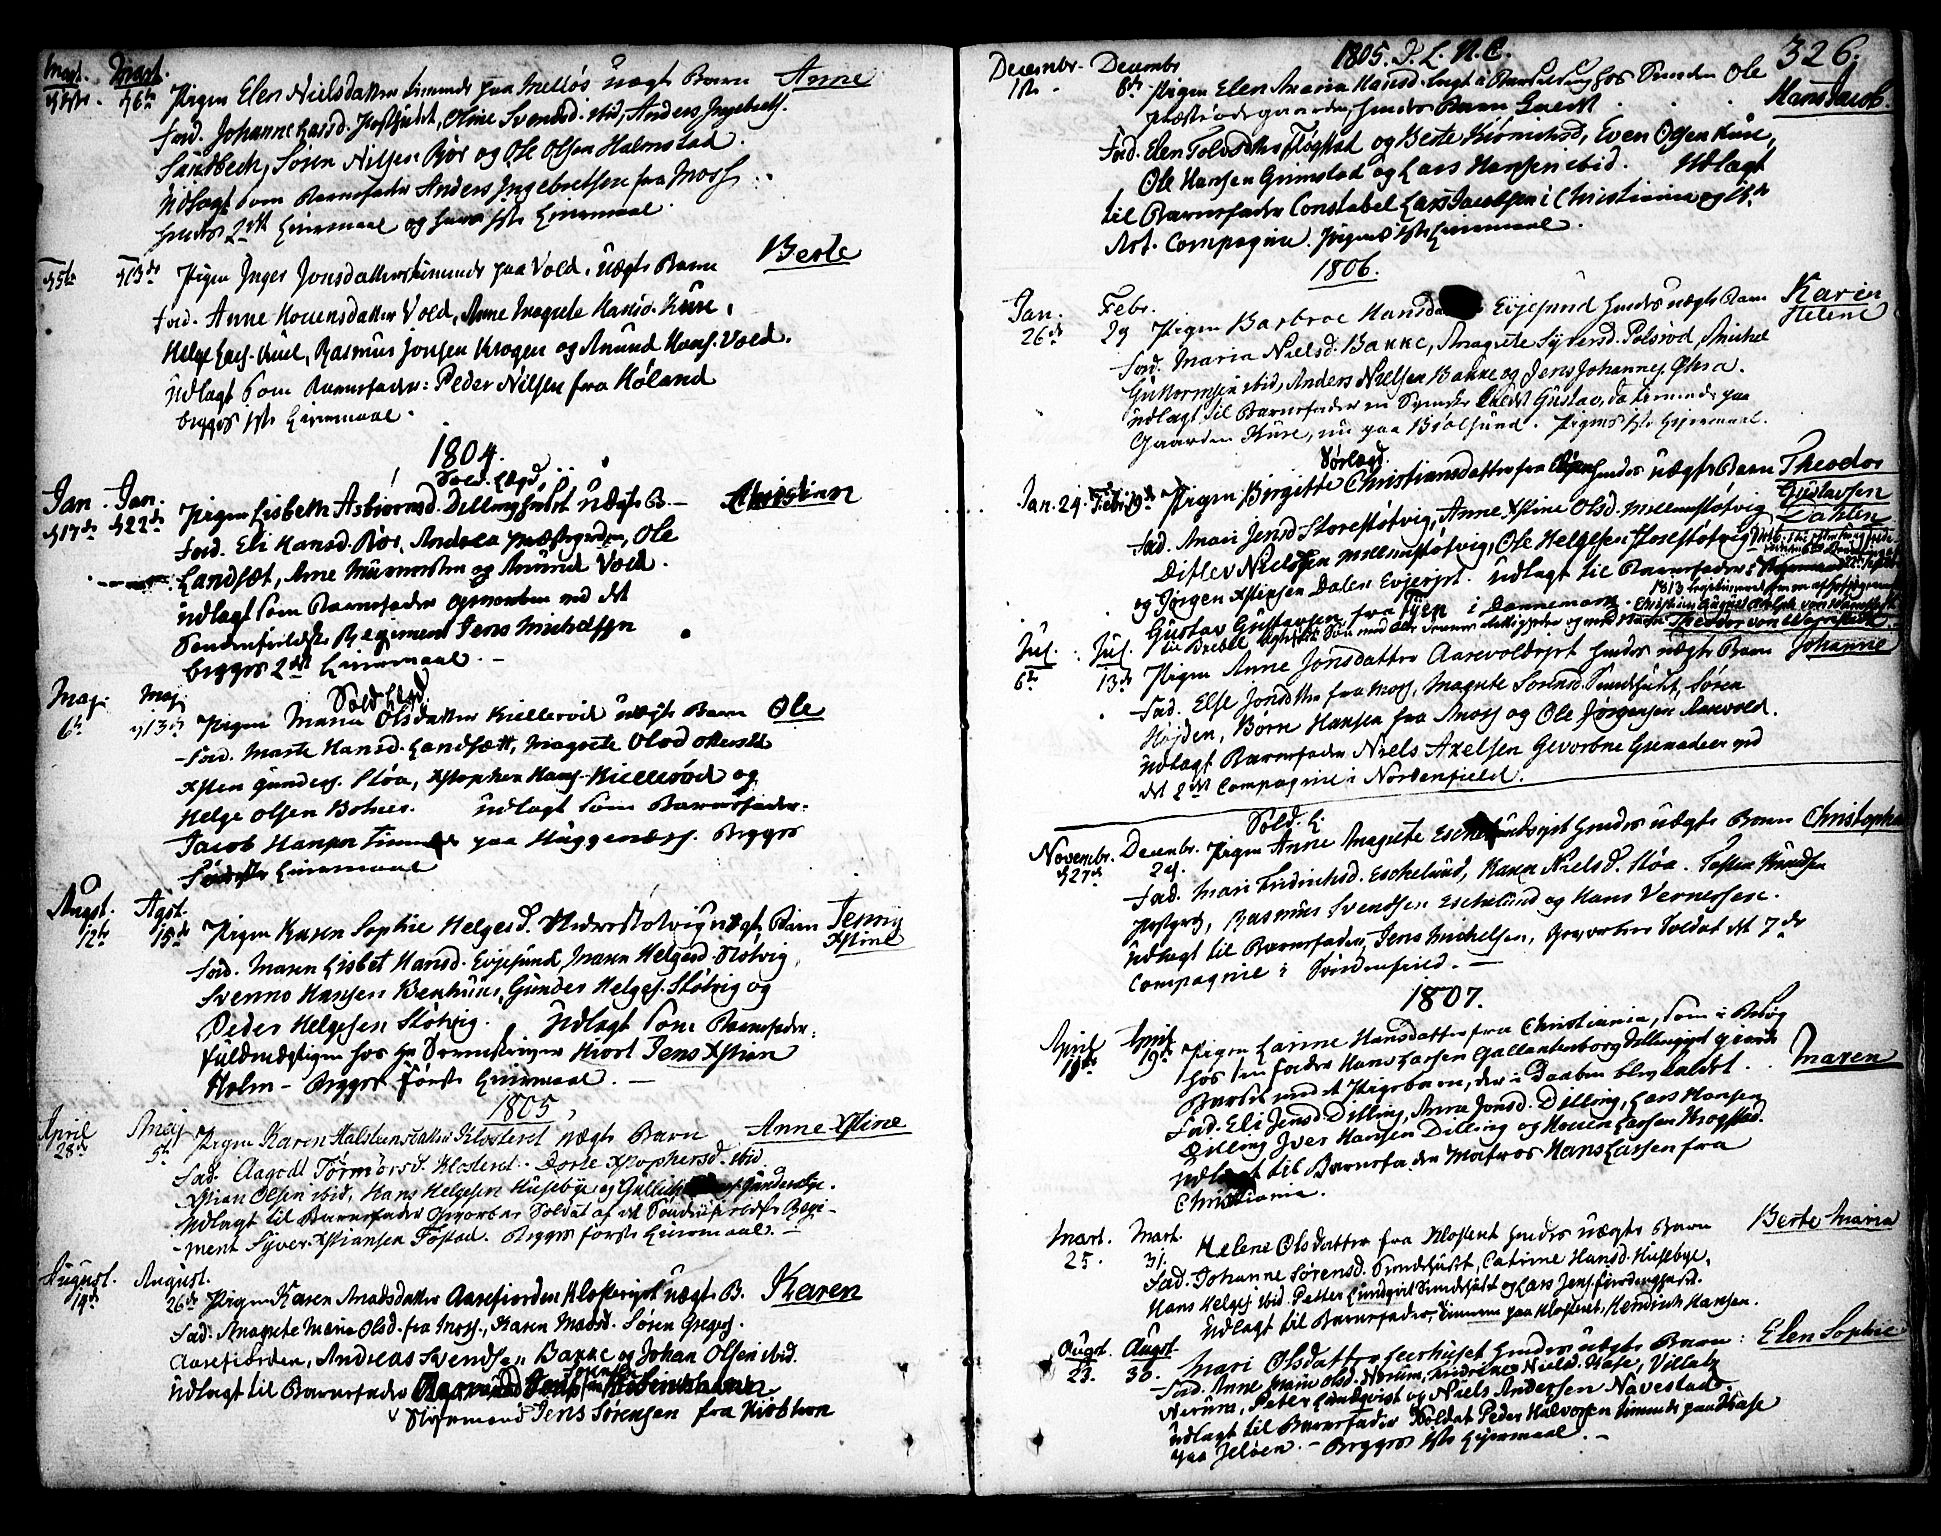 Mart. Mart.
Pigen Elen Nielsdatter tienende paa Melløs uægt Barn Anne
Fad. Johanne Larsd. Oline Svends. ibid, Anders IngebretS.
Sandbech, Søren Nilsen Rør og Ole Olsen Halmstad.
Udlagt som Barnefader Anders Ingebretsen fra Moss
hendes 2det Leiermaal og hans 1ste Leiermaal.
Pigen Inger Jonsdatter tienende paa Vold, uægte Barn Berte
Fad. Anne Hovensdatter Vold, Anne Magrete Hansd. Kure,
Helge Lars. Kure, Rasmus Jonsen Krogen og Amund Hans. Vold.
Udlagt som Barnefader: Peder Nilsen fra Høland
begges 1ste Leiermaal.
1804.
Sold. Lægd.
Jan. Jan.
d 17de d 22de Pigen Lisbeth Asbiørnsd. Dilling uægte B. Christian
Fad. Eli Hansd. Rør, Andrea Præstegarden, Ole
Landfæt, Arne Murmester og Amund Vold.
udlagt som Barnefader ved det
Søndenfieldske Regiment Jens Michelsen
begges 2det Leiermaal. -
Sold. Lægd
Maj. Maj
6te d 13de Pigen Maria Olsdatter Kiellerød uægte Barn Ole
Fad. Marte Hansd. Landfætt, Magrete Olsd
Xsten Gunders. Fløa, Xstopher Hans. Kiellerød og
Helge Olsen Bolnes. Udlagt som Barnefader.
Jacob Hansen paa Huggenæss. Begges
første Leiermaal
Augst. Agst.
12te 15de Pigen Karen Sophie Helgesd. Nederstøtvig uægte Barn Jenny
Xstine
Fad. Maren Lisbet Hansd. Evjesund, Maren Helgesd. Støtvig,
Svenno Hansen Benhuus, Gunder Helges. Støtvig og
Peder Helgesen Støtvig. Udlagt som Barnefader:
Fuldmægtigen hos Hr Sorenskriver Hiort Jens Xstian
Holm - Begges Første Leiermaal. -
1805
April Maj
28de 5te Pigen Karen Halstensdatter Klosteret uægte Barn Anne Xstine
Fad. Aagodt Tormorsd. Klosteret. Dorte Xstophersd. ibid
Xstian Olsen ibid, Hans Helgesen Husebye og
Udlagt til Barnefader Gevorben Soldat af det Søndenfieldske Regi-
ment Syver Xstiansen Fostad. Begges første Leiermaal. -
August. August.
14de 26de Pigen Karen Madsdatter Aarefiorden Klosteriet uægte B. Karen
Fad. Magrete Maria Olsd. fra Moss, Karen Madsd. Søren Gregers.
Aarefiorden, Andreas Svendsen Bakke og Johan Olsen ibid.
Udlagt til Barnefader
Styrmand Jens Sørensen fra Kiøbhvn
1805. I. L. N. C. 326.
Decembr. Decembr
1ste 8de Pigen Elen Maria Hansd. hos Smeden Ole
hendes Barn Hans Jacob.
Fad. Elen Fløgstat og Berte Even Olsen Kure,
Ole Hansen Grimstad og Lars Hansen ibid. Udlagt
til Barnefader Constabel Lars Jacobsen i Christiania
Art. Compagnie. Pigens 1ste Leiermaal.
1806.
Jan. Febr.
26de 23 Pigen Barbroe Evjesund hendes uægte Barn Karen
Helene
Fad. Maria Nielsd. Bakke, Magrete Syversd. Polsrød, Michel
Guttormsen ibid, Anders Nielsen Bakke og Jens Johannes. Øhra.
udlagt til Barnefader en Svensk Gustav, da tienende paa
Gaarden Kure, nu paa Biølsund. Pigens 1ste Leiermaal.
Sølægd.
Jan. 24. Febr. 19de Pigen Birgitte Christiansdatter fra hendes uægte Barn Theodor
Gustavsen
Dahlen
Fad. Mari Jensd. Storestøtvig, Anne Xstine Olsd. Mellemstøtvig
Ditlev Nielsen Mellemstøtvig, Ole Helgesen Storestøtvig
og Jørgen Xstensen Dalen Evjerjet. Udlagt til Barnefader
Gustav Gustavsen fra Fyen i Dannemark.
Theodor von Wernstedt
Jul. Jul.
6te 13de Pigen Anne Jonsdatter Aarevoldejet hendes uægte Barn Johanne
Fad. Else Jonsdtr fra Moss, Magrete Sørensd. Sundhuset, Søren
Højden, Børn Hansen fra Moss og Ole Jørgensen Aarvold.
udlagt Barnefader Niels Axelsen Gevorben Grenadeer ved
det 2det Compagnie i Nordenfield.
Sold. L.
Novembr. Decembr.
d 27de 24. Pigen Anne Magrete hendes uægte Barn Christopher
Fad. Mari Fridrichsd. Eschelund, Karen Nielsd. Fløa. Tosten Knudsen
Rasmus Svendsen Eschelund og Hans Vernersen.
Udlagt til Barnefader, Jens Michelsen, Gevorben Soldat det 7de
Compagnie i Søndenfield. -
1807.
April April
19de Pigen Larine Hansdatter fra Christiania, som i Besøg
hos sin Fader Hans Larsen Gallantenborg Dillingejet giorde
Barsel med et Pigebarn, der i Daaben blev kaldet. Maren
Fad. Eli Jensd. Dilling, Anne Jonsd. Dilling, Lars Hansen
Dilling Iver Hansen Dilling og Hoven Larsen Krogstad.
Udlagt til Barnefader Matros Hans Larsen fra
Christiania.
Mart. Mart.
25. 31. Helene Olsdatter fra Klosteret hendes uægte Barn Berte Maria
Fad. Johanne Sørensd. Sundhuset, Catrine Hansd. Husebye,
Hans Helges ibid. Petter Lundqvist Sundhuset og Lars Jens.
Udlagt til Barnefader, tienende paa Klosteret, Hendrich Hansen.
Augst. Augst.
23. 30. Mari Olsdatter Leerhuset hendes uægte Barn: Elen Sophie
Fad. Anne Marie Olsd. Nærum, Andrine Nielsd. Kase, Villatz
Nerum, Peter Lundqvist og Niels Andersen Navestad
udlagt til Barnefader Soldat Peder Halvorsen tienende paa Kase
paa Jeløen. - Begges 1ste Leiermaal. -